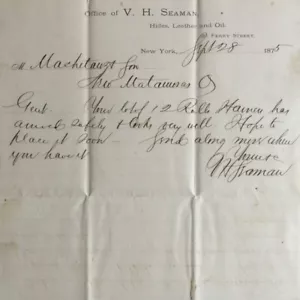 Office of V. H. Seaman
Hides, Leather and Oil
Ferry Street
New York, Sept 28 1875
M
New Matamoras O
Gent. Your lot of 12 Rolls Harness has
arrived safely & looks very well Hope to
place it soon — Send along more when
you have it
Yours
V H Seaman